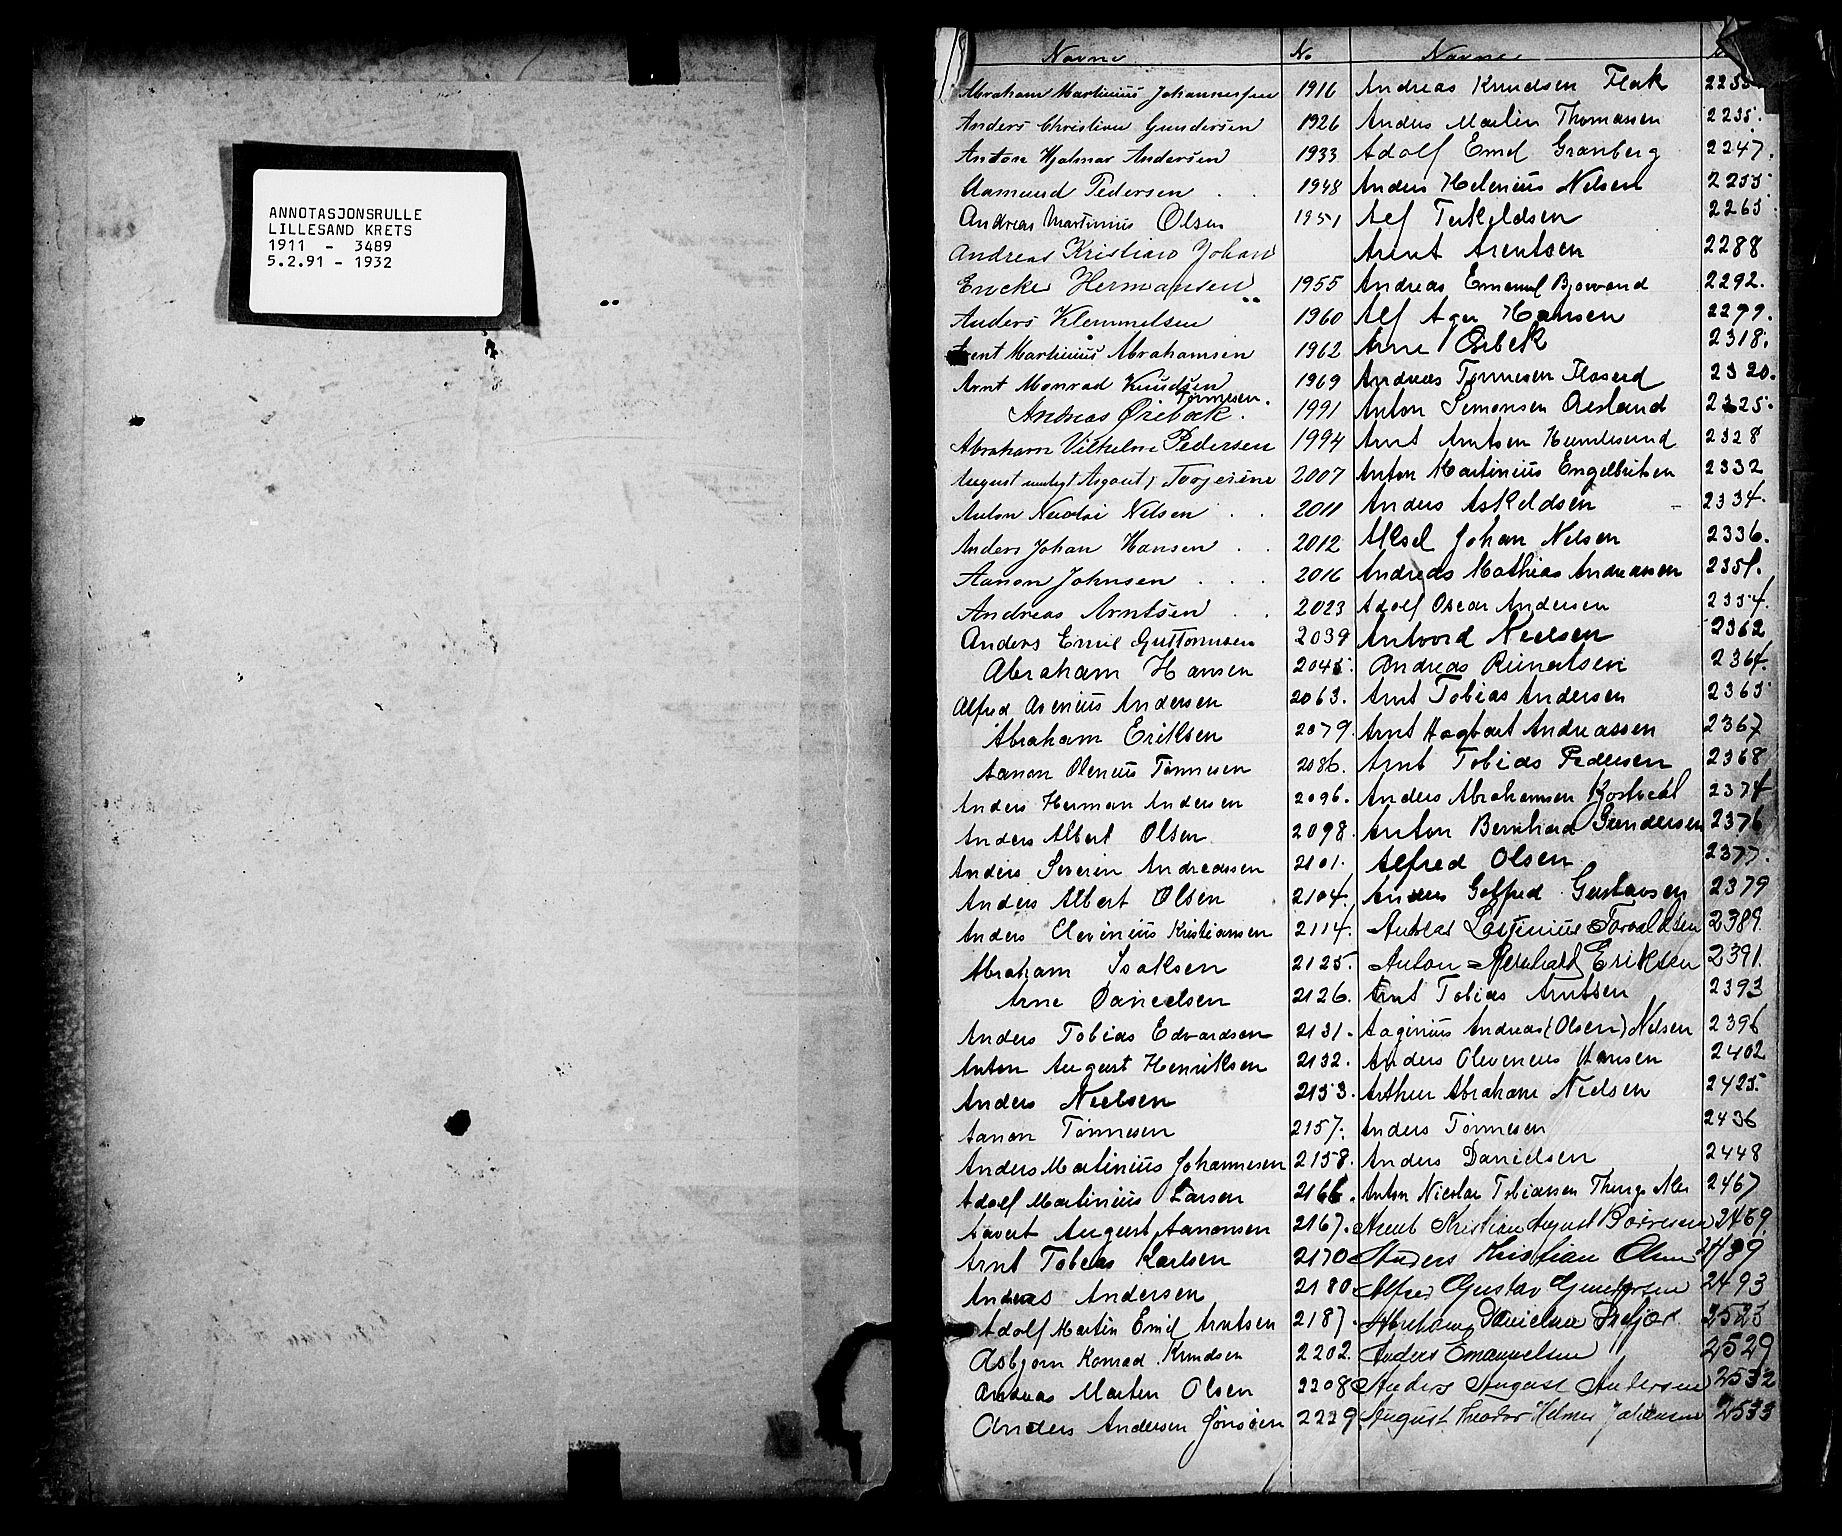 ANNOTASJONSRULLE
LILLESAND KRETS
1911 - 3489
5.2.91 - 1932
Navne No Navne
Abraham Martinius Johannessen 1916
Anders Christian Gundersen 1926
Anton Hjalmar Andersen 1933
Aamund Pedersen 1948
Andreas Martinius Olsen 1951
Andreas Kristian Johan
Encke Hermansen 1955
Anders Klemmetsen 1960
Arent Martinius Abrahamsen 1962
Arnt Monrad Knudsen 1969
Tønnesen.
Andreas Øiebæk. 1991
Abraham Vilhelm Pedersen 1994
August Torjesen 2007
Anton Nicolai Nelsen 2011
Anders Johan Hansen 2012
Aanon Johnsen 2016
Andreas Arntsen 2023
Anders Emil Guttormsen 2039
Abraham Hansen 2045.
Alfred Avenius Andersen 2063.
Abraham Eriksen 2079.
Aanon Olenius Tønnesen 2086.
Anders Herman Andersen 2096.
Anders Albert Olsen 2098.
Anders Severin Andreassen 2101.
Anders Albert Olsen 2104.
Anders Olevinius Kristiansen 2114.
Abraham Isaksen 2125.
Arne Danielsen 2126.
Anders Tobias Edvardsen 2131.
Anton August Henriksen 2132.
Anders Nielsen 2153.
Aanon Tønnesen 2157.
Anders Martinius Johannesen 2158.
Adolf Martinius Larsen 2166.
August Aanonsen 2167.
Arnt Tobias Karlsen 2170
Andreas Andersen 2180
Adolf Martin Emil Arntsen 2187.
Asbjørn Konrad Knudsen 2202.
Andreas Martin Olsen 2208
Anders Andersen Jønsøen 2229
Andreas Knudsen Flak
Anders Martin Thomassen 2235.
Adolf Emil Granberg 2247.
Anders Helenius Nelsen 2255
Alf Terkeldsen 2265
Arent Arentsen 2288
Andreas Emanuel Bjorvand 2292.
Alf Ager Hansen 2299.
Arne Osbek 2318.
Andreas Tønnesen 2320.
Anton Simonsen 2325.
Arnt Arntsen 2328
Anton Martinius Engelbritsen 2332
Anders Askeldsen 2334.
Aksel Johan Nelsen 2336.
Andreas Mathias Andreassen 2351.
Adolf Oscar Andersen 2354.
Antvord Nielsen 2362
Andreas Reinertsen 2364.
Arnt Tobias Andersen 2365
Arnt Hagbart Andreassen 2367
Arnt Tobias Pedersen 2368
Anders Abrahamsen 2374
Anton Bernhard Gundersen 2376
Alfred Olsen 2377.
Anders Golfred Gustavsen 2379
Andreas Torvaldsen 2389.
Anton Bernhard Eriksen 2391.
Arnt Tobias Arntsen 2393
Aaginius Andreas (Olsen) Nelsen 2396
Anders Olevenius Hansen 2402
Arthur Abraham Nielsen 2425.
Anders Tønnesen 2436
Anders Danielsen 2448
Anton Nicolai Tobiassen 2467
Kristian August Børresen 2469
Anders Kristian Olsen 2489
Alfred Gustav Gundersen 2493
Abraham Danielsen 2523
Anders Emanuelsen 2529
Anders August Andersen 2532
August Theodor Helmer Johansen 2533